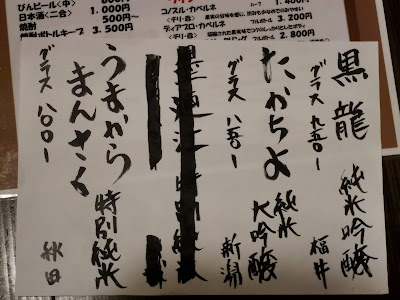 びんビール〈中〉
日本酒〈二合〉 1.000円
焼酎 500円~
焼酎ボトルキープ 3.500円
コノスル・カベルネ
〈チリ・赤〉
ディアブロ・カベルネ
〈チリ・赤〉
3.200円
2.800円
黒龍 純米吟醸
グラス 九五〇- 福井
たかちよ 純米大吟醸
グラス 八五〇- 新潟
うまからまんさく 特別純米
グラス 八〇〇- 秋田